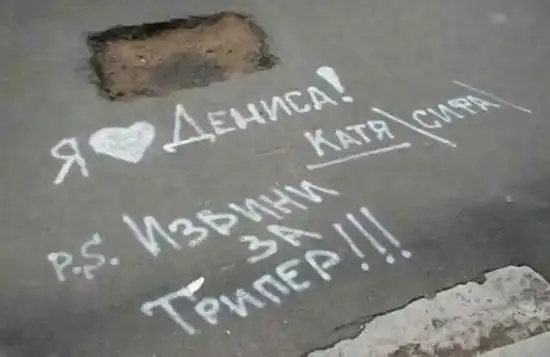 Я ♥ ДЕНИСА!
КАТЯ\СИРА\
P.S. ИЗВИНИ
ЗА
ТРИПЕР!!!